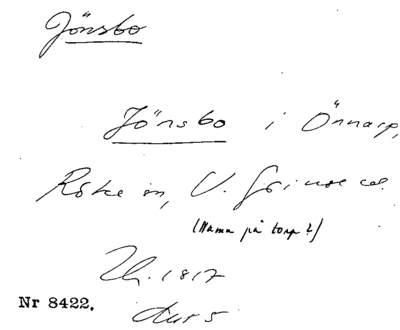 Jönsbo
Jönsbo i Örnarp,
Röke sn, V. Göinge hd.
(Namn på torp?)
Hfl. 1817
Nr 8422.